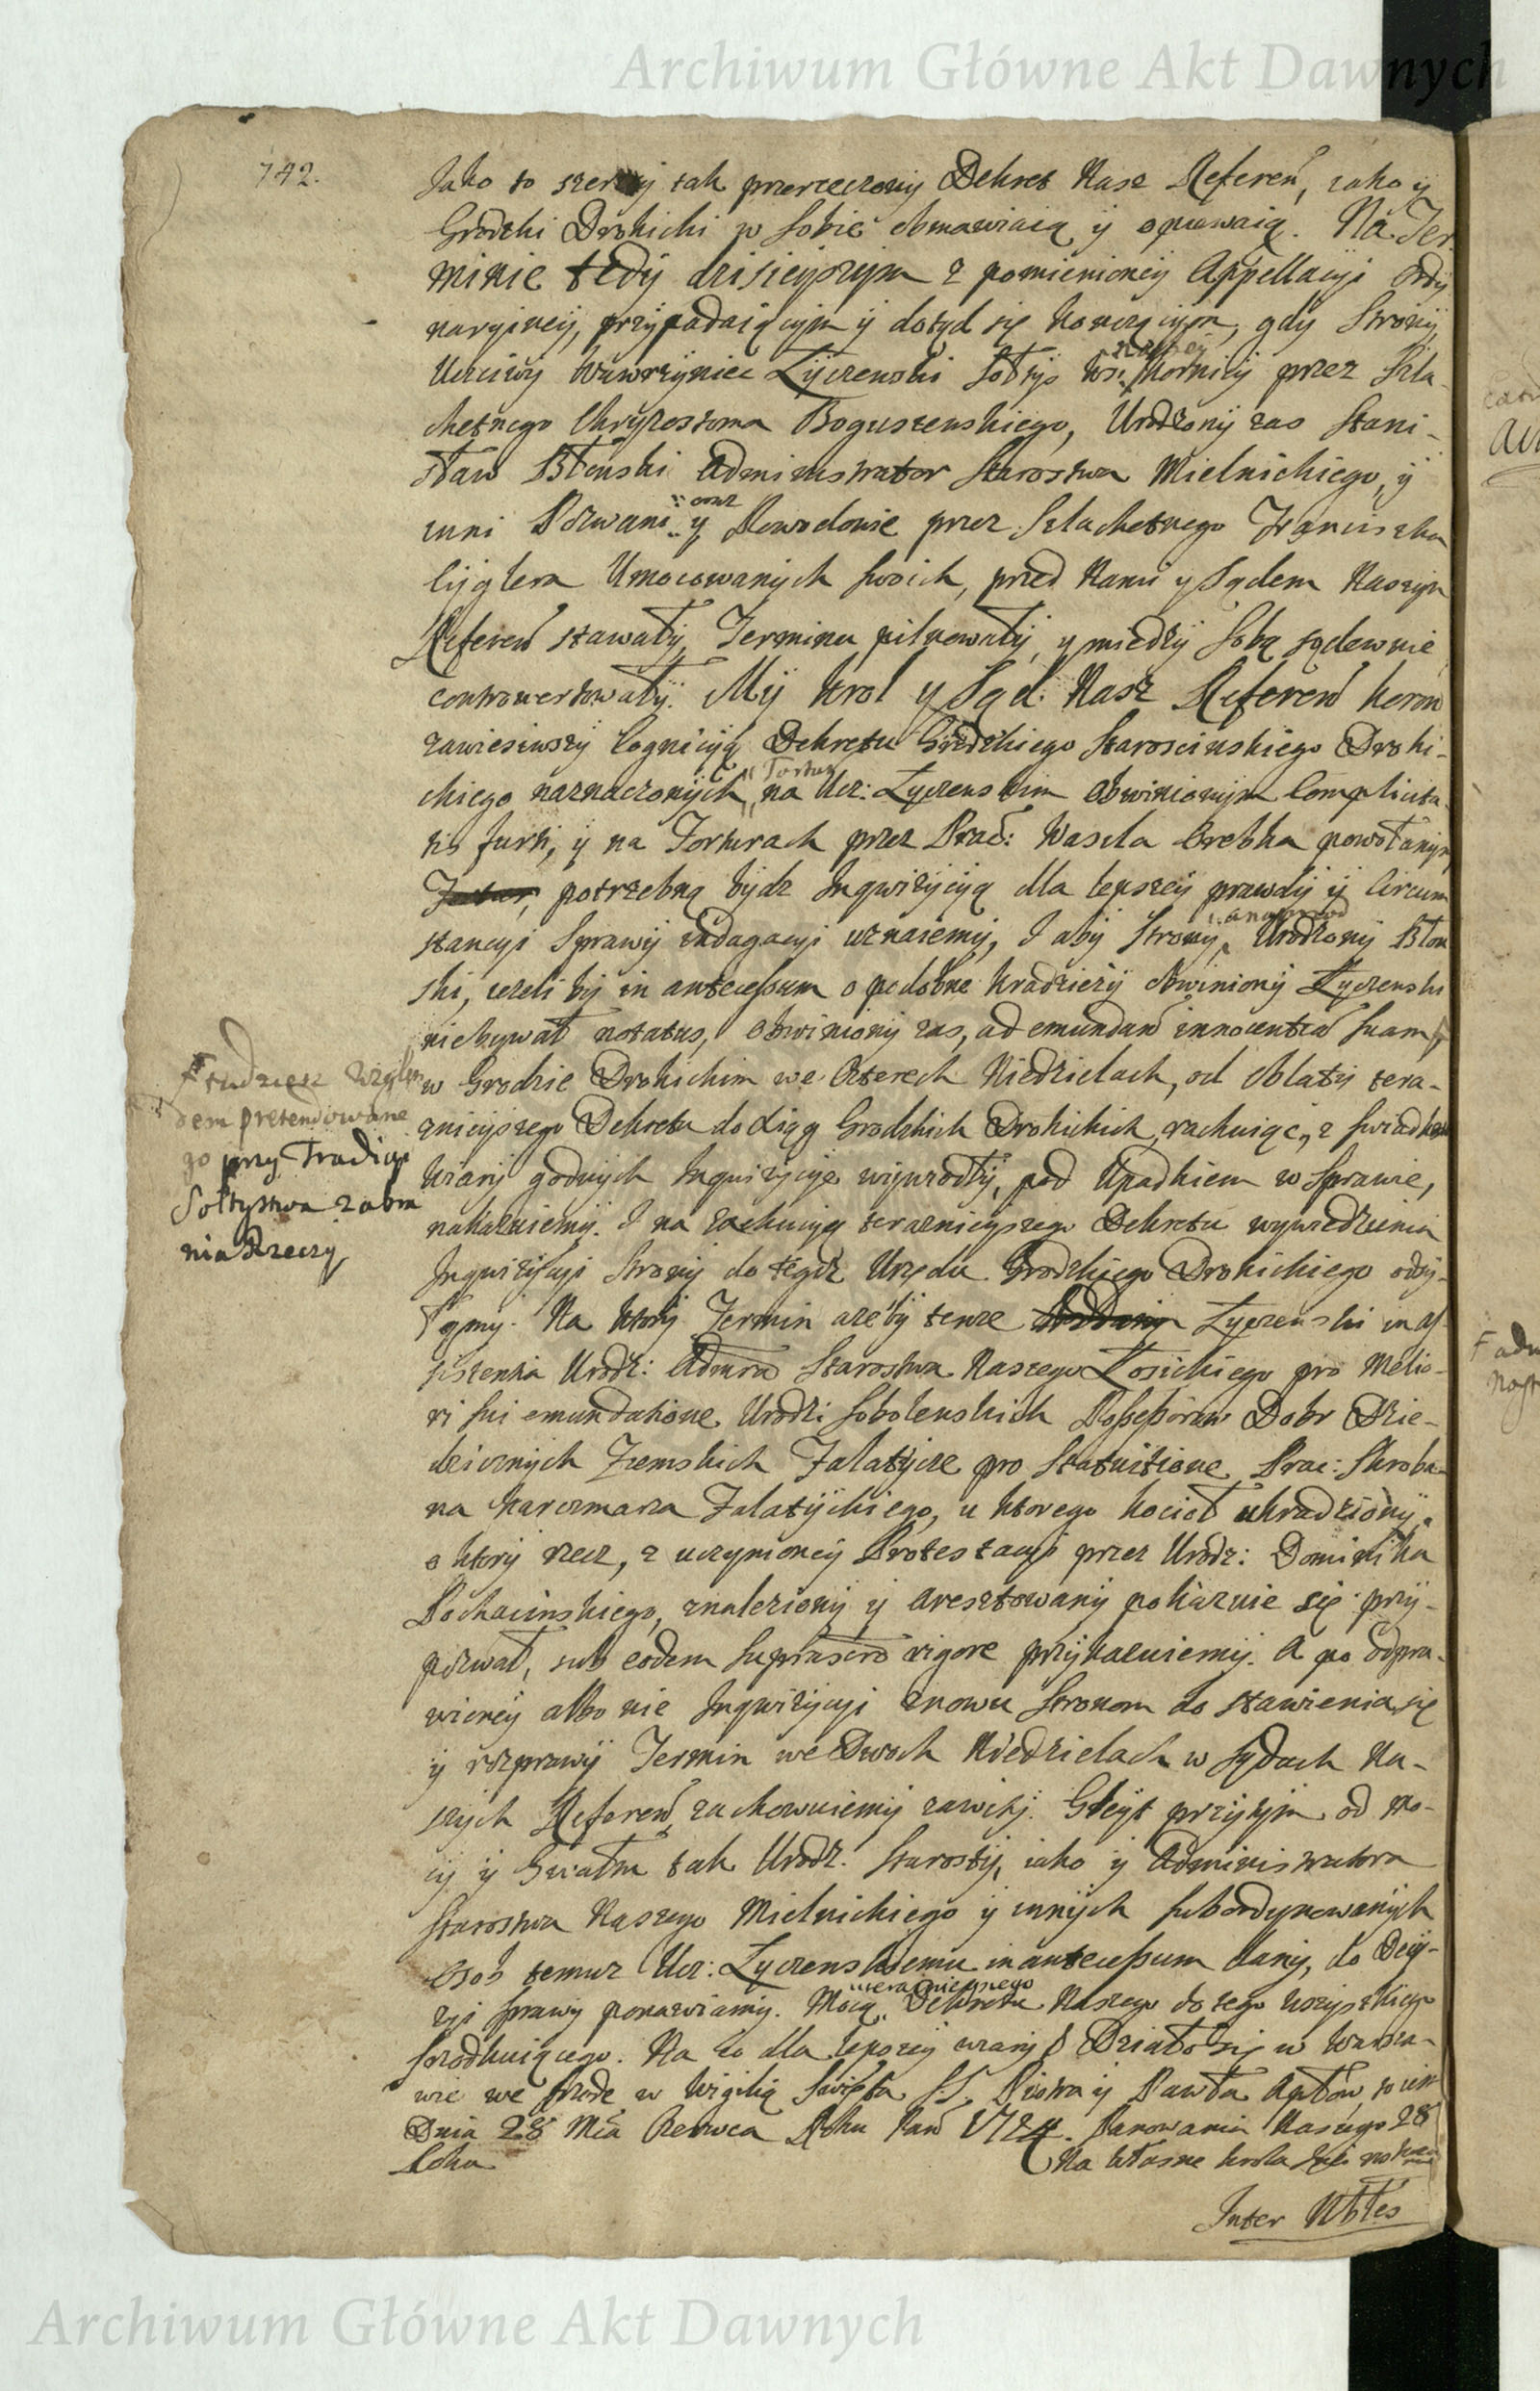 Archiwum Główne Akt Dawnych
742.
Jako to szerzey tak przerzeczony Dekret Nasz Referen, iako y
Grodzki Drohicki w sobie obmawiaią y opiewaią. Na Ter
minie tedy dzisieyszym z pomienioney Appellacyi Ordy
naryiney, przypadaiącym y dotąd się konczącym, gdy Strony
Ucciwy Wawrzyniec Łyczewski Sołtys Wsi Kornicy przez Szla-
chetnego Chryzostoma Boguszewskiego, Urodzony zas Stani-
sław Błonski Administrator Starostwa Mielnickiego, y
inni Pozwani oraz y Powodowie przez Szlachetnego Franciszka
Cyglera Umocowanych swoich, przed Nami y Sądem Naszym
Referen stawały, Terminu pilnowały, y miedzy sobą sądownie
controwertowały. My Krol y Sąd Nasz Referen Koron
zawiesiwszy Cognicyą Dekretu Grodzkiego Staroscinskiego Drohi-
ckiego naznaczonych Tortur na Ucz: Łyczewskim obwinionym Complicita-
tis furti, y na Torturach przez Prac: Wasila Hrebka powołanym
potrzebną bydz Inqwizycyą dla lepszey prawdy y Circum
stancyi Sprawy indagacyi uznaiemy, I aby Strony, a naprzod Urodzony Błon
ski, ieżeli by in antecessum o podobne kradzieży obwiniony Łyczewski
niebywał notatus, obwiniony zas, ad emundan innocentiam suam,
w Grodzie Drohickim we Czterech Niedzielach, od oblaty tera-
znieyszego Dekretu do Xiąg Grodzkich Drohickich rachuiąc, z swiadkow
wiary godnych Inqwizycye wywiodły, pod Upadkiem w Sprawie,
nakazuiemy. I na exekucyą teraznieyszego Dekretu wywiedzenia
Inqwizycyi Strony do tegoz Urzędu Grodzkiego Drohickiego odsy-
łamy. Na ktory Termin ażeby tenze Łyczewski in as-
sistentia Urodz: Admra Starostwa Naszego Łosickiego pro melio-
ri sui emundatione Urodz: Sobolewskich Possessorow Dobr Dzie-
dzicznych Ziemskich Falatycze pro statuitione Prac: Skroba-
na Karczmarza Falatyckiego, u ktorego kocioł ukradziony,
o ktory rzecz, z uczynioney Protestacyi przez Urodz: Dominika
Pochacinskiego, znaleziony y aresztowany pokazuie się przy-
pozwał, sub eodem suprascro rigore przykazuiemy. A po odpra-
wioney albo nie Inqwizycyi znowu Stronom do stawienia się
y rozprawy Termin we Dwoch Niedzielach w Sądach Na-
szych Referen zachowuiemy zawity. Gleyt przytym od mo-
cy y Gwałtu tak Urodz: Starosty, iako y Administratora
Starostwa Naszego Mielnickiego y innych subordynowanych
osob temuz Ucz: Łyczewskiemu in antecessum dany, do Decy-
zyi Sprawy ponawiamy. Mocą teraznieyszego Dekretu Naszego do tego wszystkiego
srzodkuiącego. Na co dla lepszey wiary Działo się w Warsza-
wie we Srode w Wigilią Swięta S.S. Piotra y Pawła Apłow, to iest
Dnia 28 Mca Czerwca Roku Pan 1724. Panowania Naszego 28
Roku
Na własne Krola Jmci
Inter Nbles
tudziesz wzglę
dem pretendowane
go przy Tradicyi
Sołtystwa zabra
nia Rzeczy
Archiwum Główne Akt Dawnych